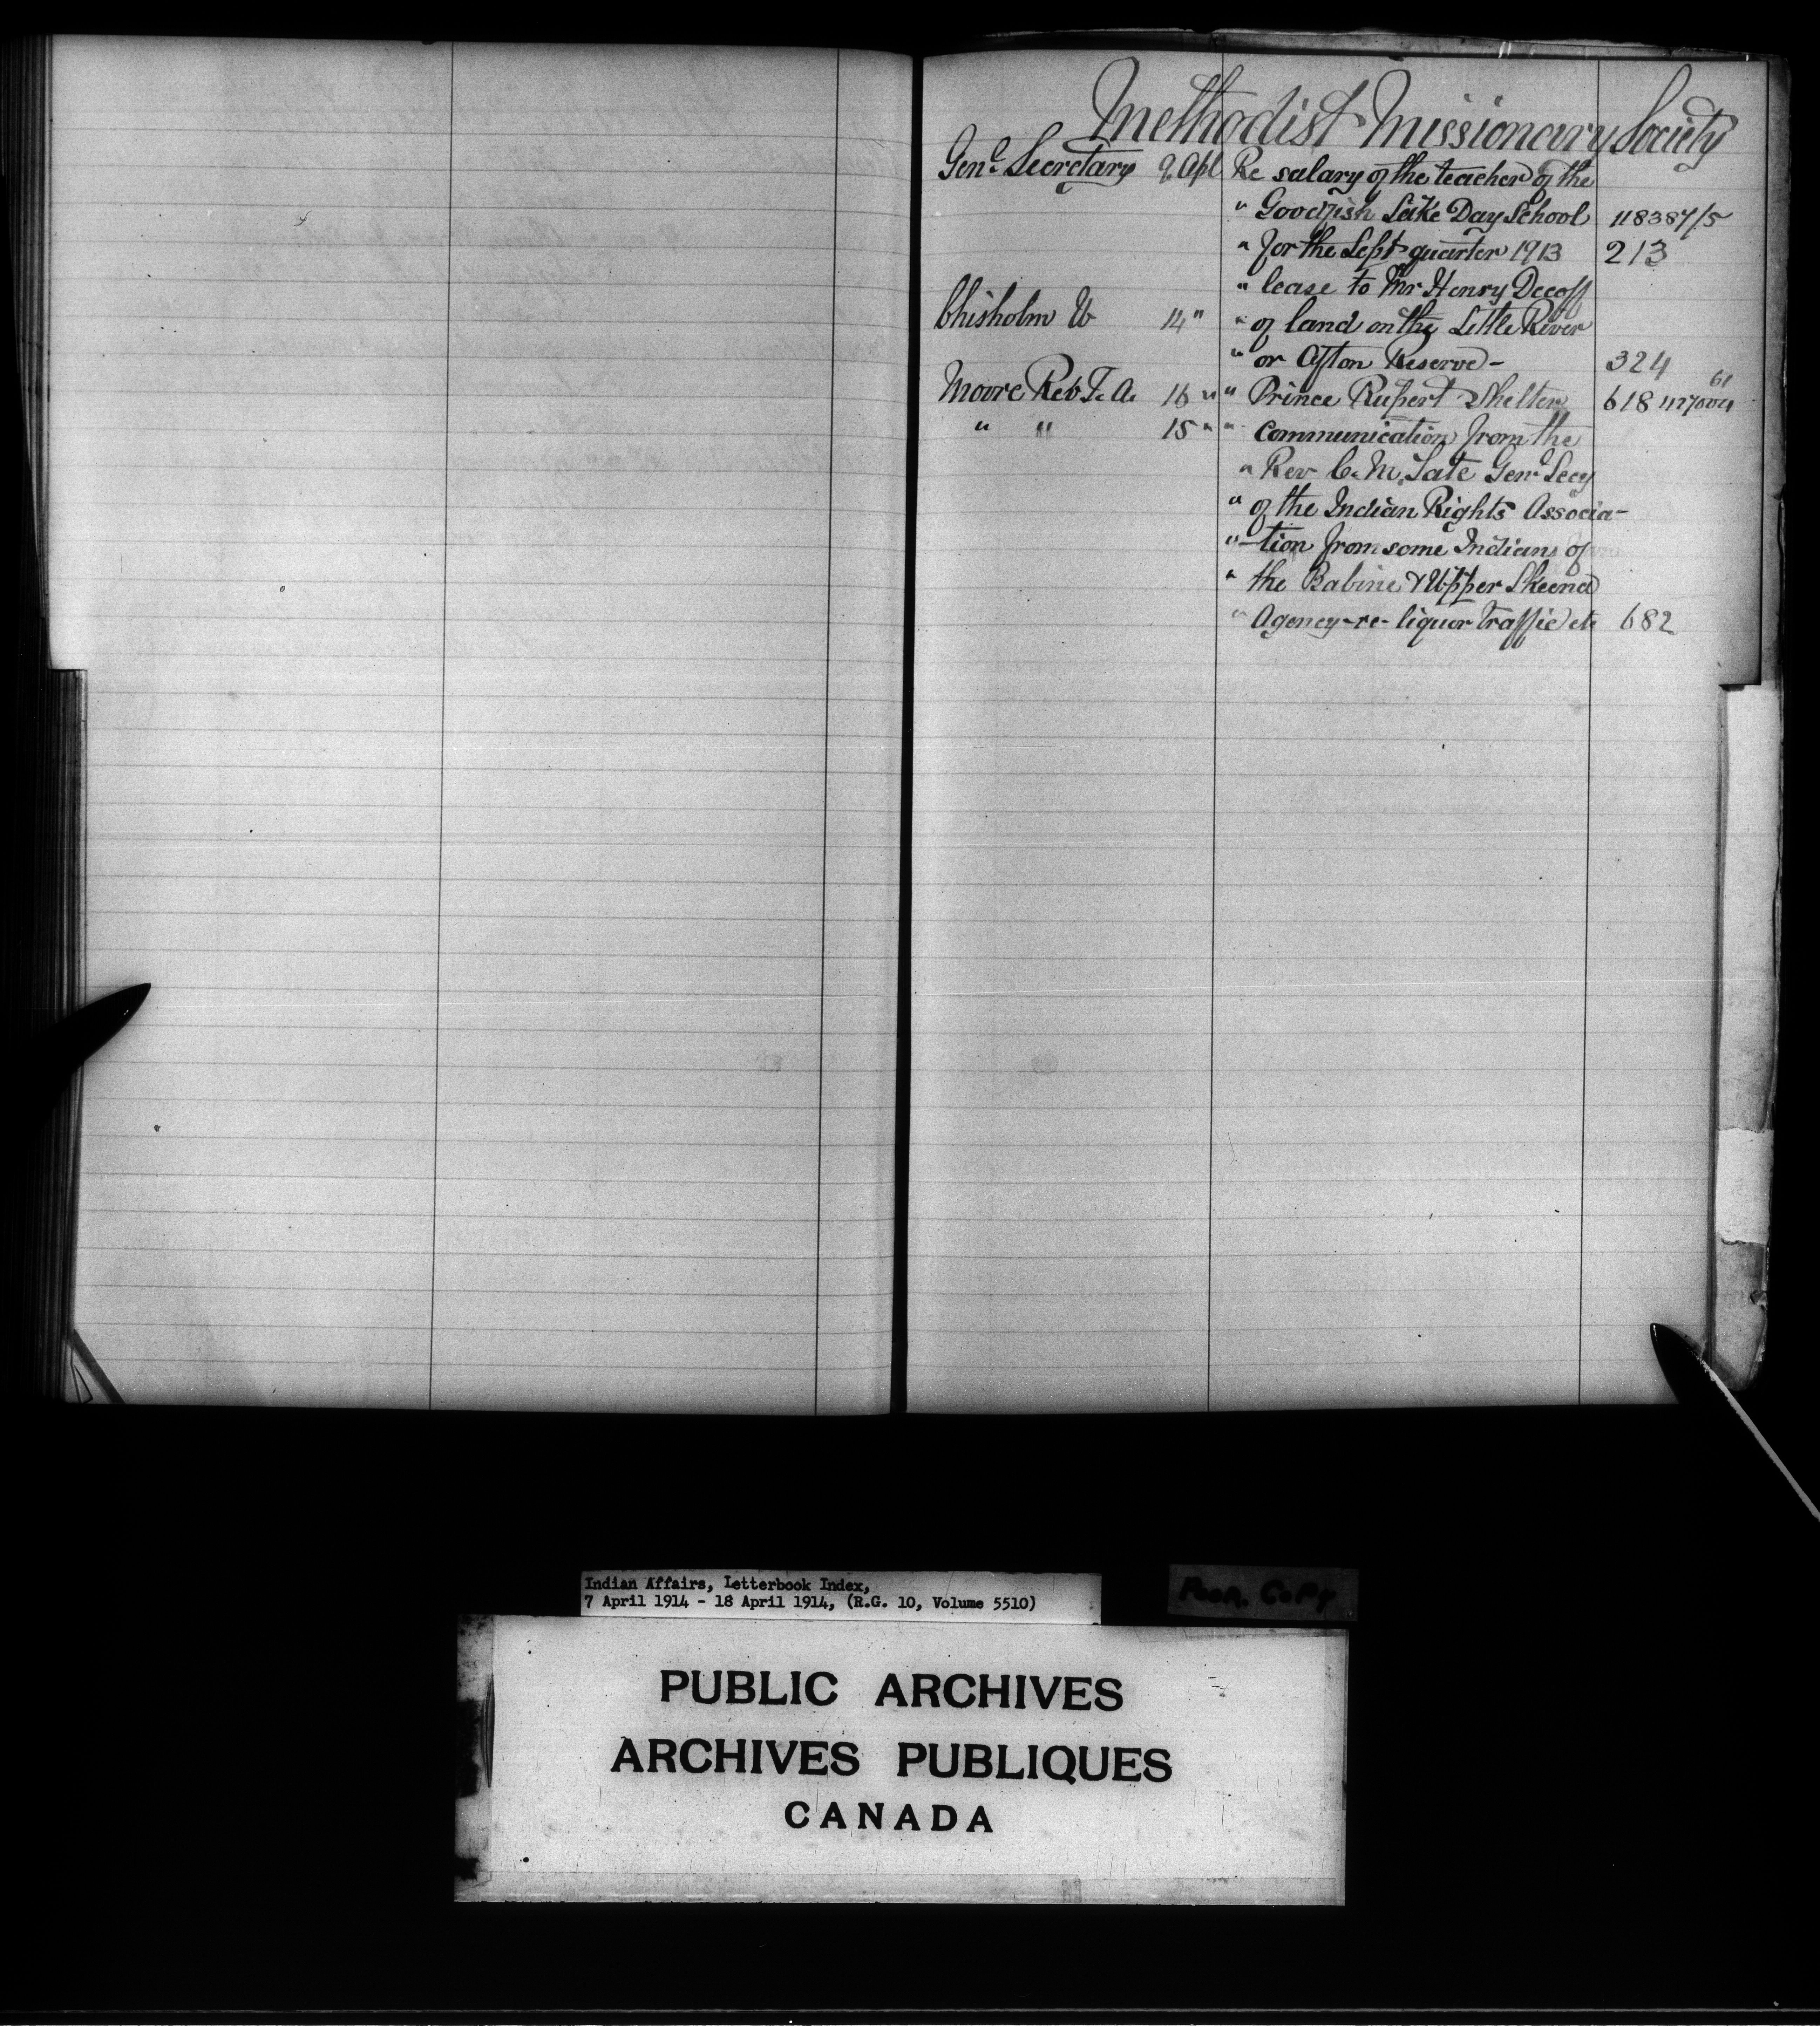 Methodist Missionary Society
Genl Secretary 9 Apl Re salary of the teacher of the
" Goodfish Lake Day School 118387/5
" for the Sept quarter 1913 213
" lease to Mr Henry Decoff
Chisholm W 14 " " of land on the Little River
" or Afton Reserve - 324
Moore Rev T. A. 16 " " Prince Rupert Shelter 618
" " 15 " " Communication from the
" Rev C. M. Tate Genl Secy
" of the Indian Rights Associa-
" -tion from some Indians of
" the Babine & Upper Skeena
" Agency - re - liquor traffic etc 682
Indian Affairs, Letterbook Index,
7 April 1914 - 18 April 1914, (R.G. 10, Volume 5510)
Poor. Copy
PUBLIC ARCHIVES
ARCHIVES PUBLIQUES
CANADA